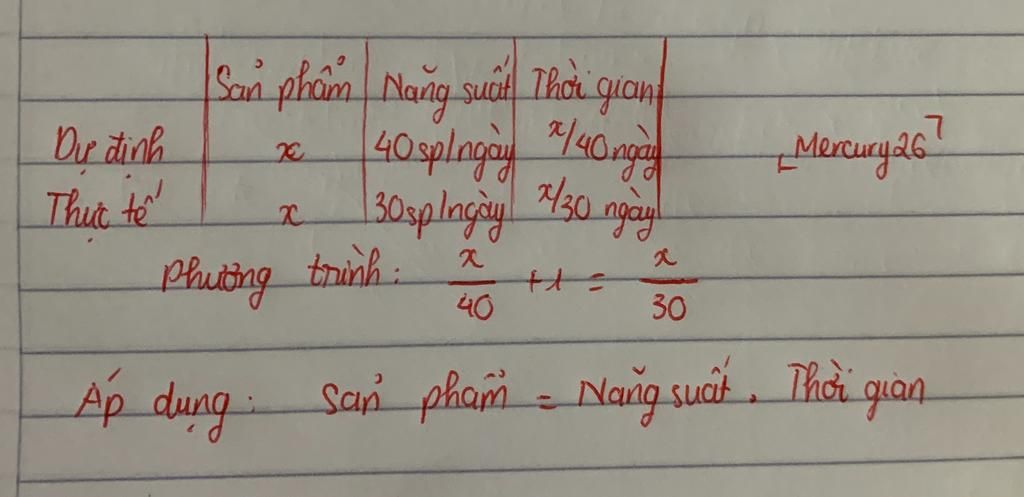 Sản phẩm Năng suất Thời gian
Dự định x 40sp/ngày x/40 ngày
Mercury26
Thực tế x 30sp/ngày x/30 ngày
Phương trình: x/40 +1 = x/30
Áp dụng: Sản phẩm = Năng suất . Thời gian